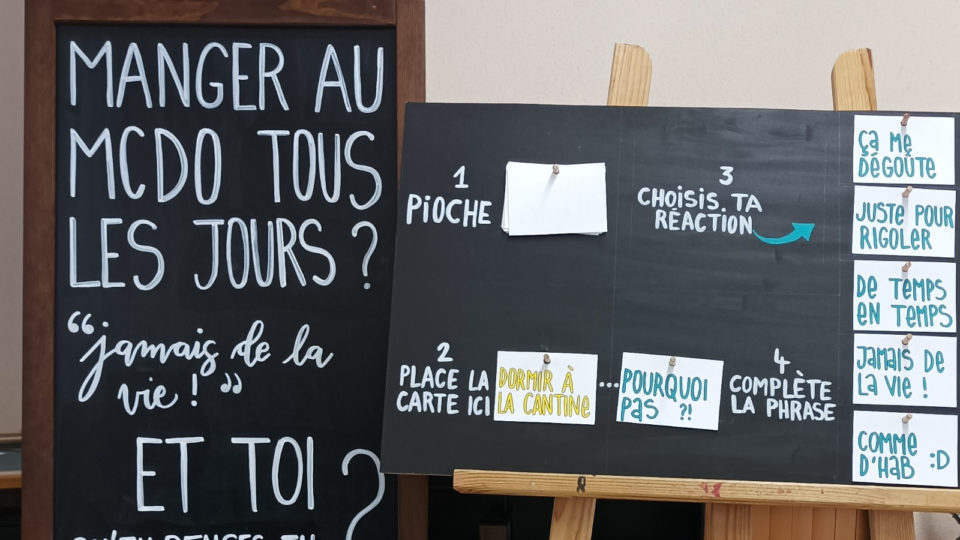 MANGER AU
MCDO TOUS
LES JOURS ?
“jamais de la
vie ! ”
ET TOI ?
QU'EN PENSES-TU
1
PIOCHE
2
PLACE LA
CARTE ICI
DORMIR À
LA CANTINE
...
POURQUOI
PAS ?!
3
CHOISIS. TA
RÉACTION
4
COMPLÈTE
LA PHRASE
ÇA ME
DÉGOÛTE
JUSTE POUR
RIGOLER
DE TEMPS
EN TEMPS
JAMAIS DE
LA VIE !
COMME
D'HAB :D